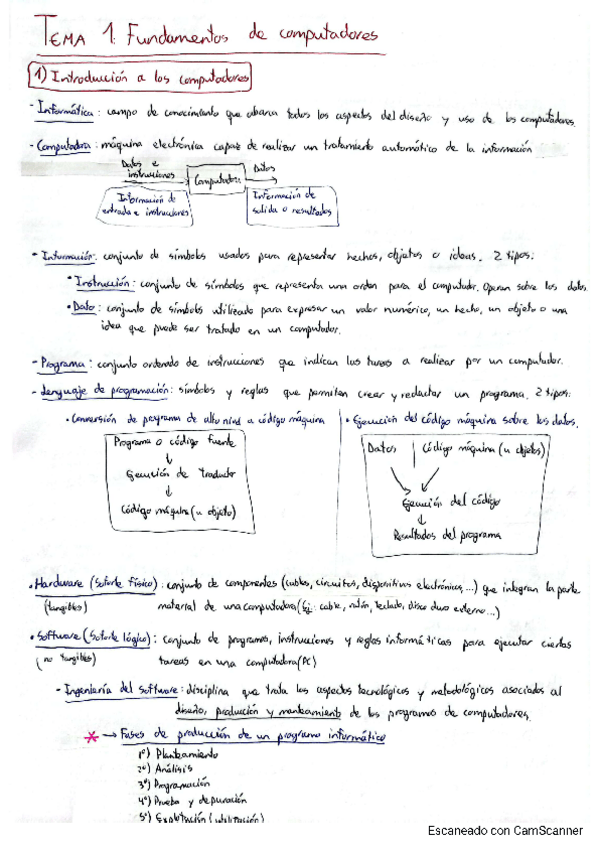 TEMA 1: Fundamentos de computadores
1) Introducción a los computadores
- Informática: campo de conocimiento que abarca todos los aspectos del diseño y uso de los computadores.
- Computadora: máquina electrónica capaz de realizar un tratamiento automático de la información
Datos e instrucciones → Computadora → Datos
Información de entrada e instrucciones
Información de salida o resultados
- Información: conjunto de símbolos usados para representar hechos, objetos o ideas. 2 tipos:
• Instrucción: conjunto de símbolos que representa una orden para el computador. Operan sobre los datos
• Dato: conjunto de símbolos utilizado para expresar un valor numérico, un hecho, un objeto o una
idea que puede ser tratado en un computador.
- Programa: conjunto ordenado de instrucciones que indican las tareas a realizar por un computador.
- Lenguaje de programación: símbolos y reglas que permiten crear y redactar un programa. 2 tipos:
• Conversión de programa de alto nivel a código máquina
Programa o código fuente
↓
Ejecución de traductor
↓
Código máquina (u objeto)
• Ejecución del código máquina sobre los datos.
Datos | Código máquina (u objetos)
Ejecución del código
↓
Resultados del programa
• Hardware (Soporte físico): conjunto de componentes (cables, circuitos, dispositivos electrónicos,...) que integran la parte
(tangibles) material de una computadora (Ej: cable, ratón, teclado, disco duro externo...)
• Software (Soporte lógico): conjunto de programas, instrucciones y reglas informáticas para ejecutar ciertas
(no tangibles) tareas en una computadora (PC)
- Ingeniería del Software: disciplina que trata los aspectos tecnológicos y metodológicos asociados al
diseño, producción y mantenimiento de los programas de computadores.
* → Fases de producción de un programa informático
1º) Planteamiento
2º) Análisis
3º) Programación
4º) Prueba y depuración
5º) Explotación (utilización)
Escaneado con CamScanner